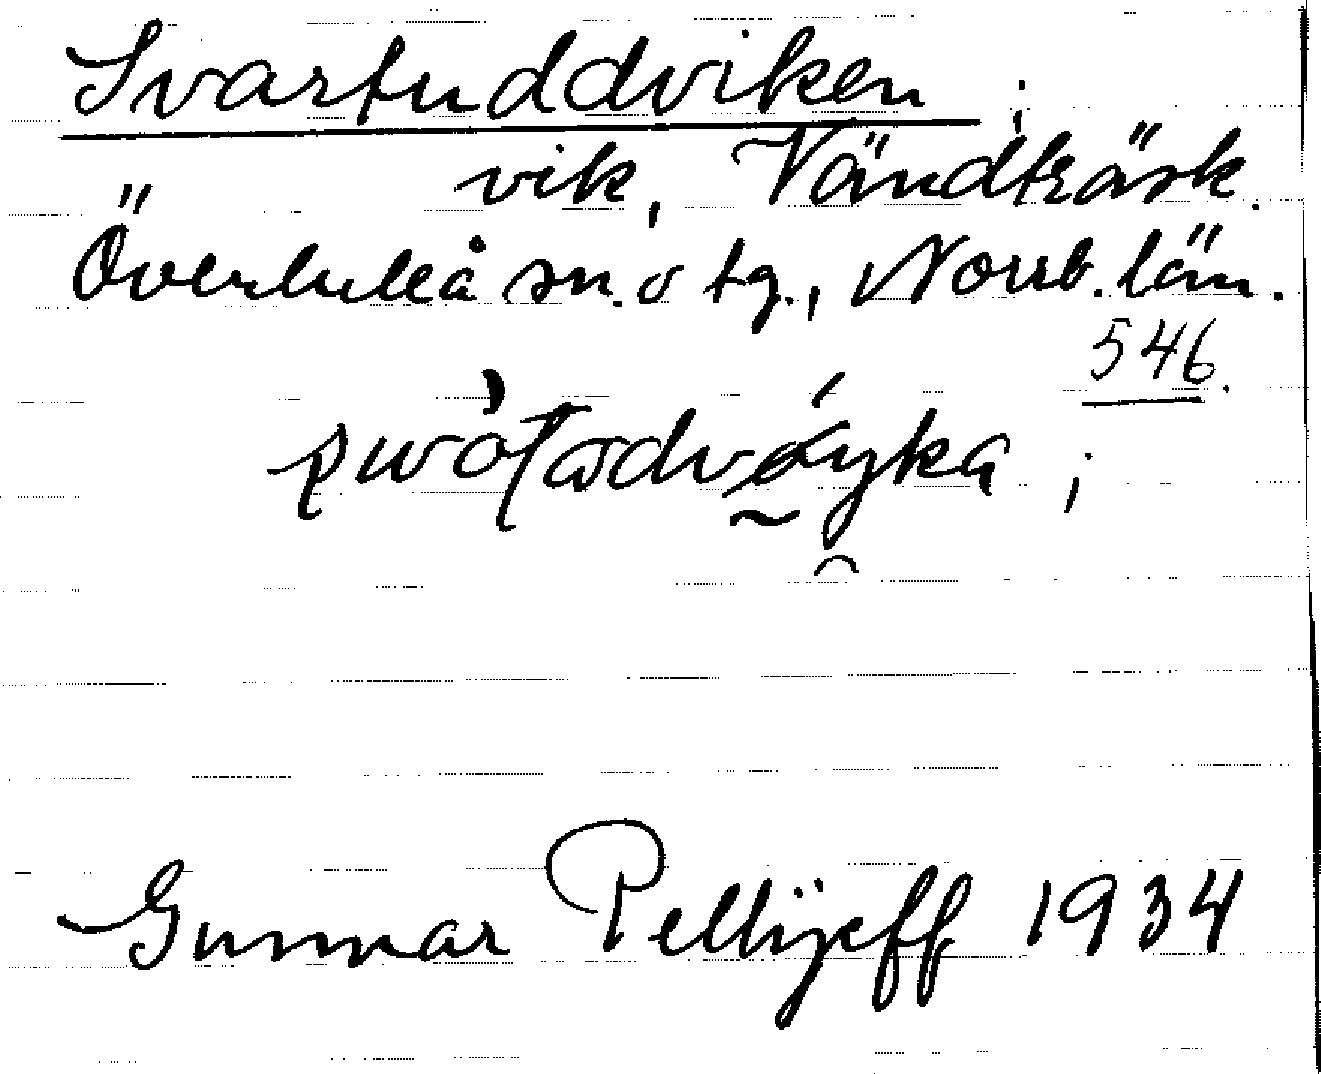 Svartuddviken ;
vik, Vändträsk.
Överluleå sn. o tg., Norrb. län.
546.
Gunnar Pellijeff 1934